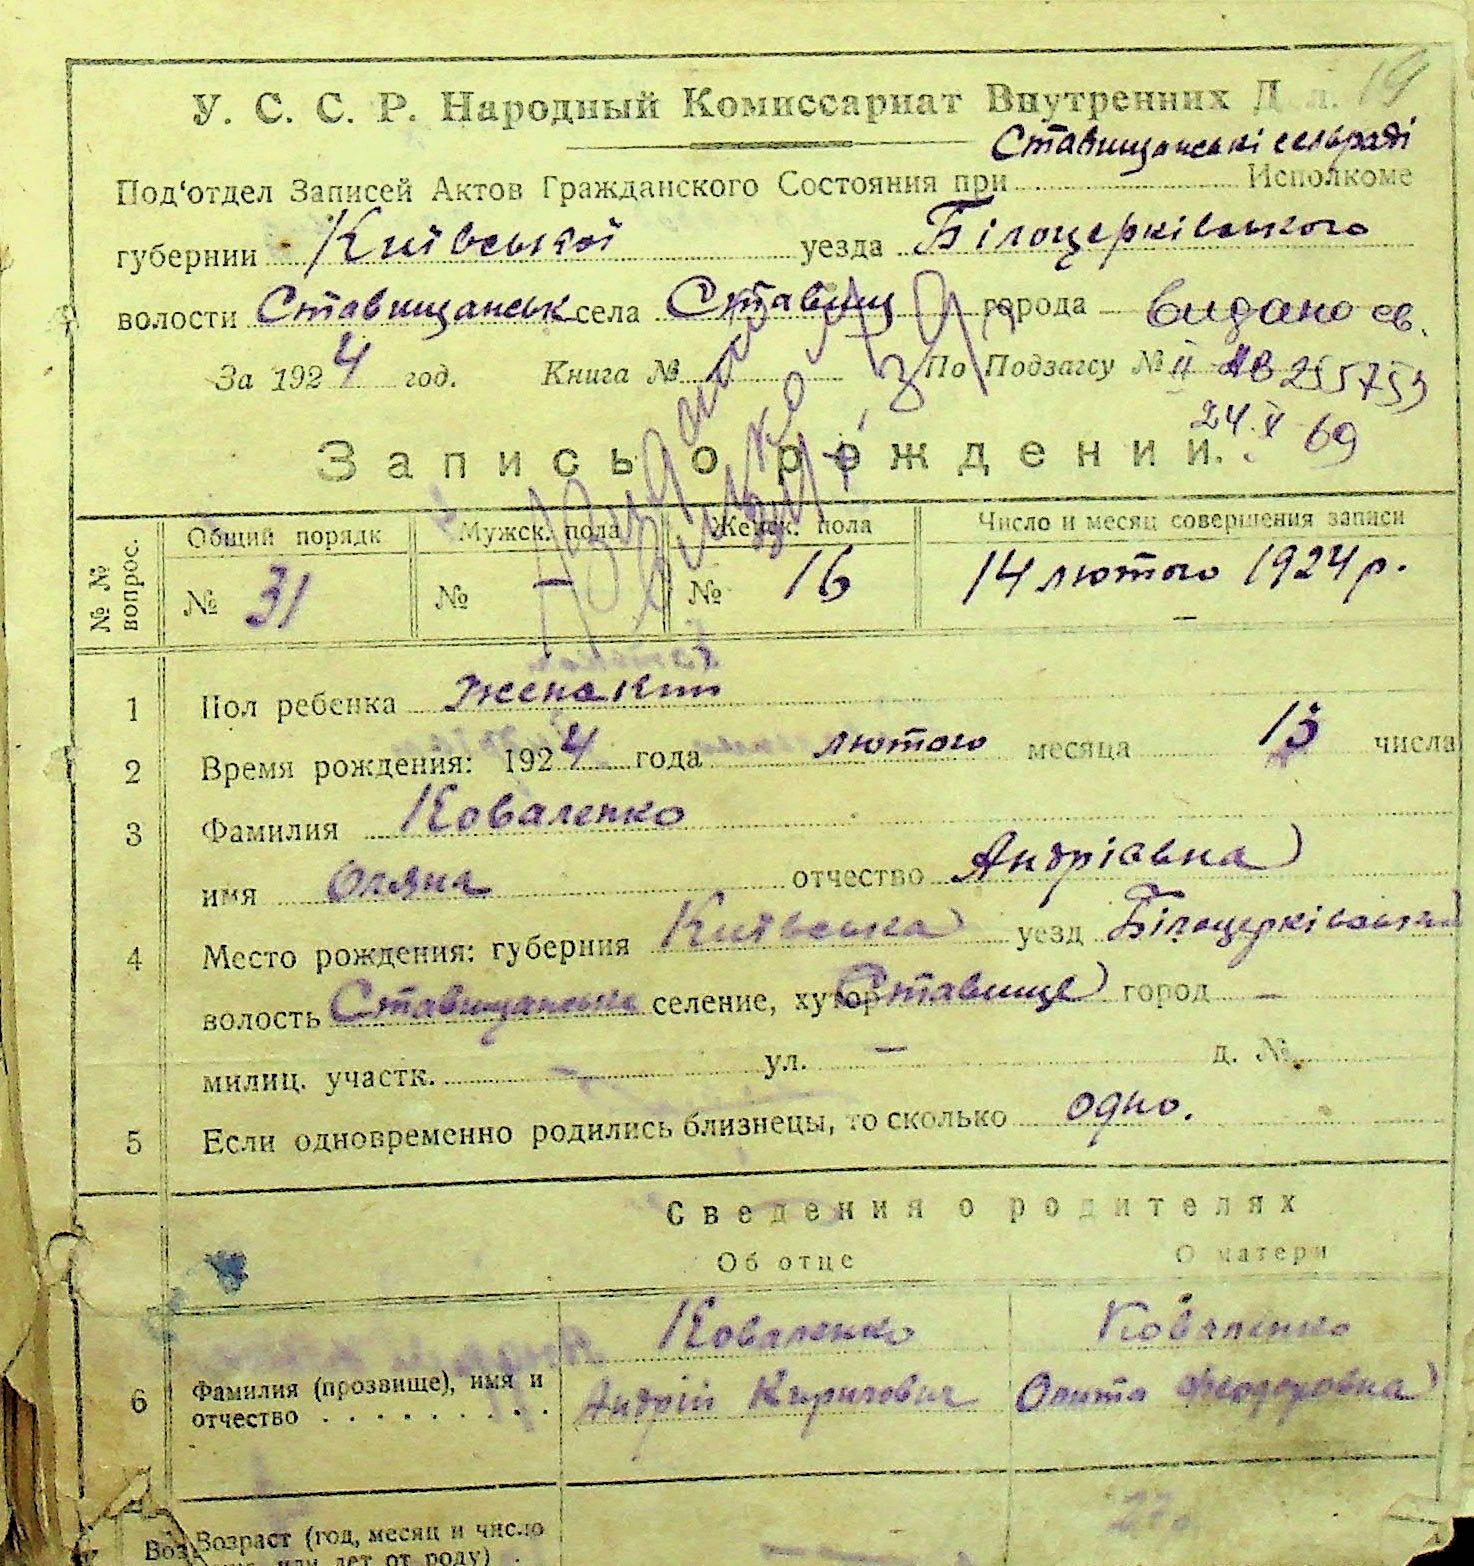 19
У. С. С. Р. Народный Комиссариат Внутренних Д л.
Ставищанські сельраді
Под‘отдел Записей Актов Гражданского Состояния при Исполкоме
губернии Київської уезда Білоцерківського
волости Ставищанськ села Ставищ города — видано св.
За 1924 год. Книга № По Подзагсу № II АВ 255753
24 V 69
Запись о рождении.
№ № вопрос. Общий порядк Мужск. пола Женск. пола Число и месяц совершения записи
№ 31 № — № 16 14 лютого 1924 р.
1 Пол ребенка
2 Время рождения: 1924 года лютого месяца 13 числа
3 Фамилия Коваленко
имя Оляна отчество Андріївна
4 Место рождения: губерния Київська уезд Білоцерківський
волость Ставищанська селение, хутор Ставище город —
милиц. участк. — ул. — д. №
5 Если одновременно родились близнецы, то сколько одно.
Сведения о родителях
Об отце О матери
Коваленко Коваленко
6 Фамилия (прозвище), имя и
отчество . . . . . . . . . Андрій Кирилович Феодоровна
27
Воз Возраст (год, месяц и число
или лет от роду) .